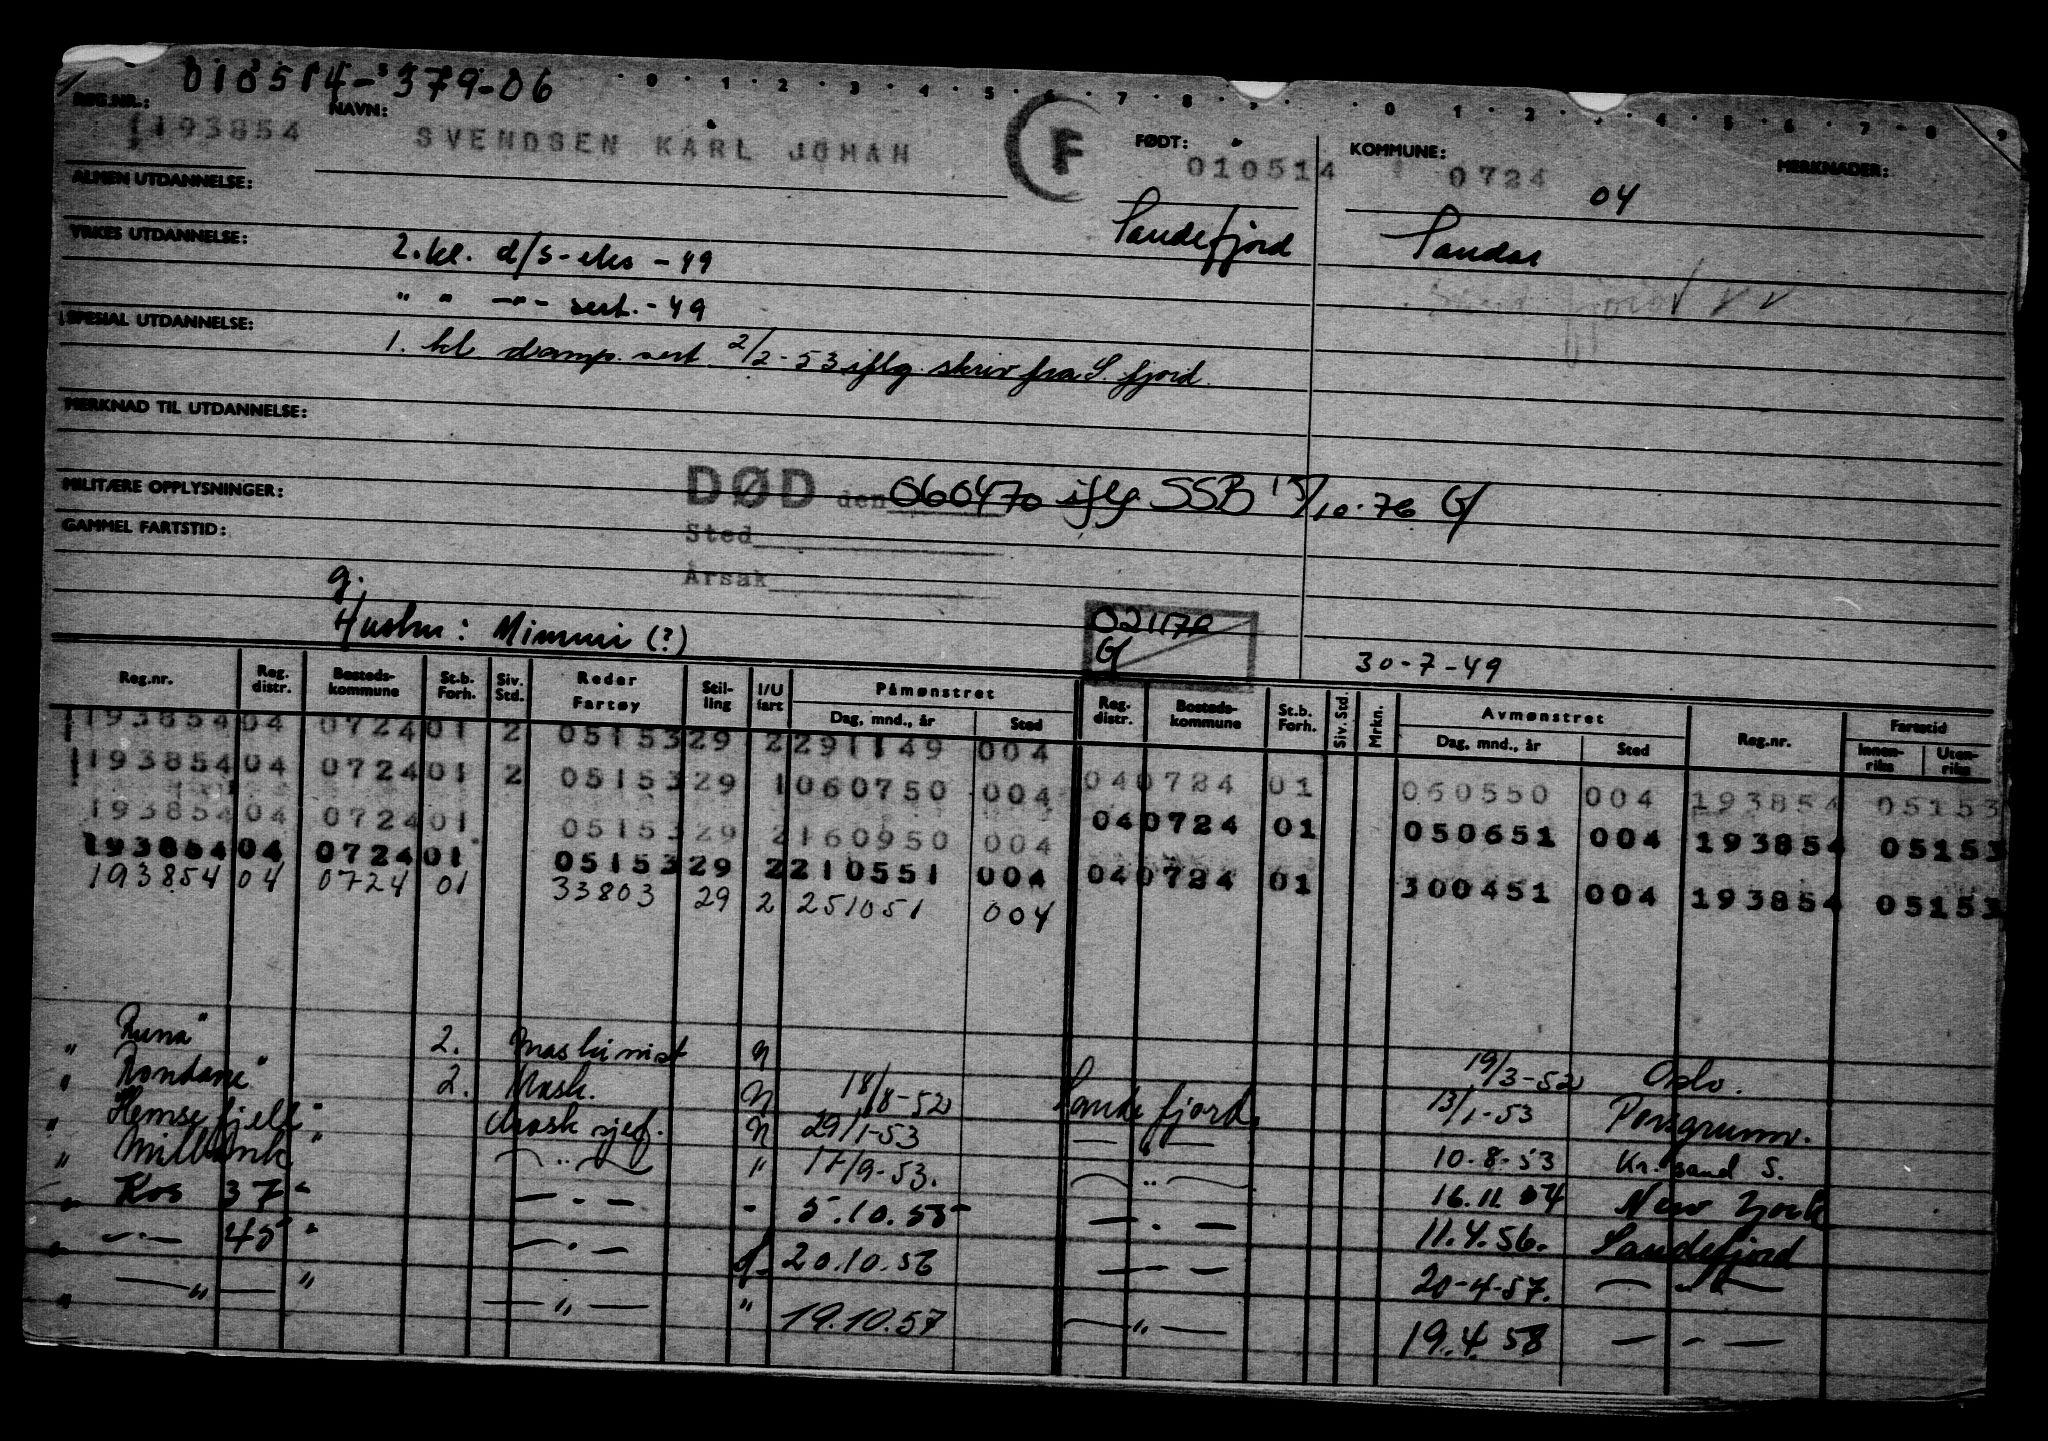 010514-379-06
0 · 1 · 2 · 3 · 4 · 5 · 6 · 7 · 8 · 0 1 · 2 · 4 · 5 · 6 · 7 - 8 · 9
REG.NR.: NAVN: FØDT: KOMMUNE: MERKNADER:
193854 SVENDSEN KARL JOHAN F 010514 0724 04
ALMEN UTDANNELSE:
Sandefjord Sandar
YRKES UTDANNELSE: 2. kl. d/s-eks - 49
" " -"- sert. - 49
SPESIAL UTDANNELSE: 1. kl. damp. sert. 2/2-53 iflg. skriv fra S. fjord.
MERKNAD TIL UTDANNELSE:
MILITÆRE OPPLYSNINGER: DØD den 060470 iflg SSB 15/10-76 G
GAMMEL FARTSTID: Sted
Årsak
g.
Hustru: Mimmi (?)
30-7-49
Reg.nr. Reg. distr. Bosteds-kommune St.b. Forh. Siv. Std. Reder Fartøy Stil-ling I/U fart Påmønstret Dag, mnd., år Sted Reg. distr. Bosteds-kommune St.b. Forh. Siv. Std. Mrkn. Avmønstret Dag, mnd., år Sted Reg.nr. Fartstid Innen-riks Uten-riks
193854 04 0724 01 2 05153 29 2 291149 004
193854 04 0724 01 2 05153 29 1 060750 004 04 0724 01 060550 004 193854 05153
193854 04 0724 01 05153 29 2 160950 004 04 0724 01 050651 004 193854 05153
193854 04 0724 01 05153 29 2 210551 004 04 0724 01 300451 004 193854 05153
193854 04 0724 01 33803 29 2 251051 004
" Runa" 2. maskinist n 19/3-52 Oslo.
" Rondane" 2. Mask. n 18/8-52 Sandefjord. 13/1-53 Porsgrunn.
" Hemsefjell" Mask sjef. n 29/1-53 — " — 10-8-53 Kr. sand S.
" Millbank" — " — " 17/9-53. — " — 16.11.54 New York
" Kos 37" — " — " 5.10.55 — " — 11.4.56. Sandefjord
" — " — 45" — " — 20.10.56 — " — 20-4-57. — " —
" — " — " — " — " 19.10.57 — " — 19.4.58 — " —